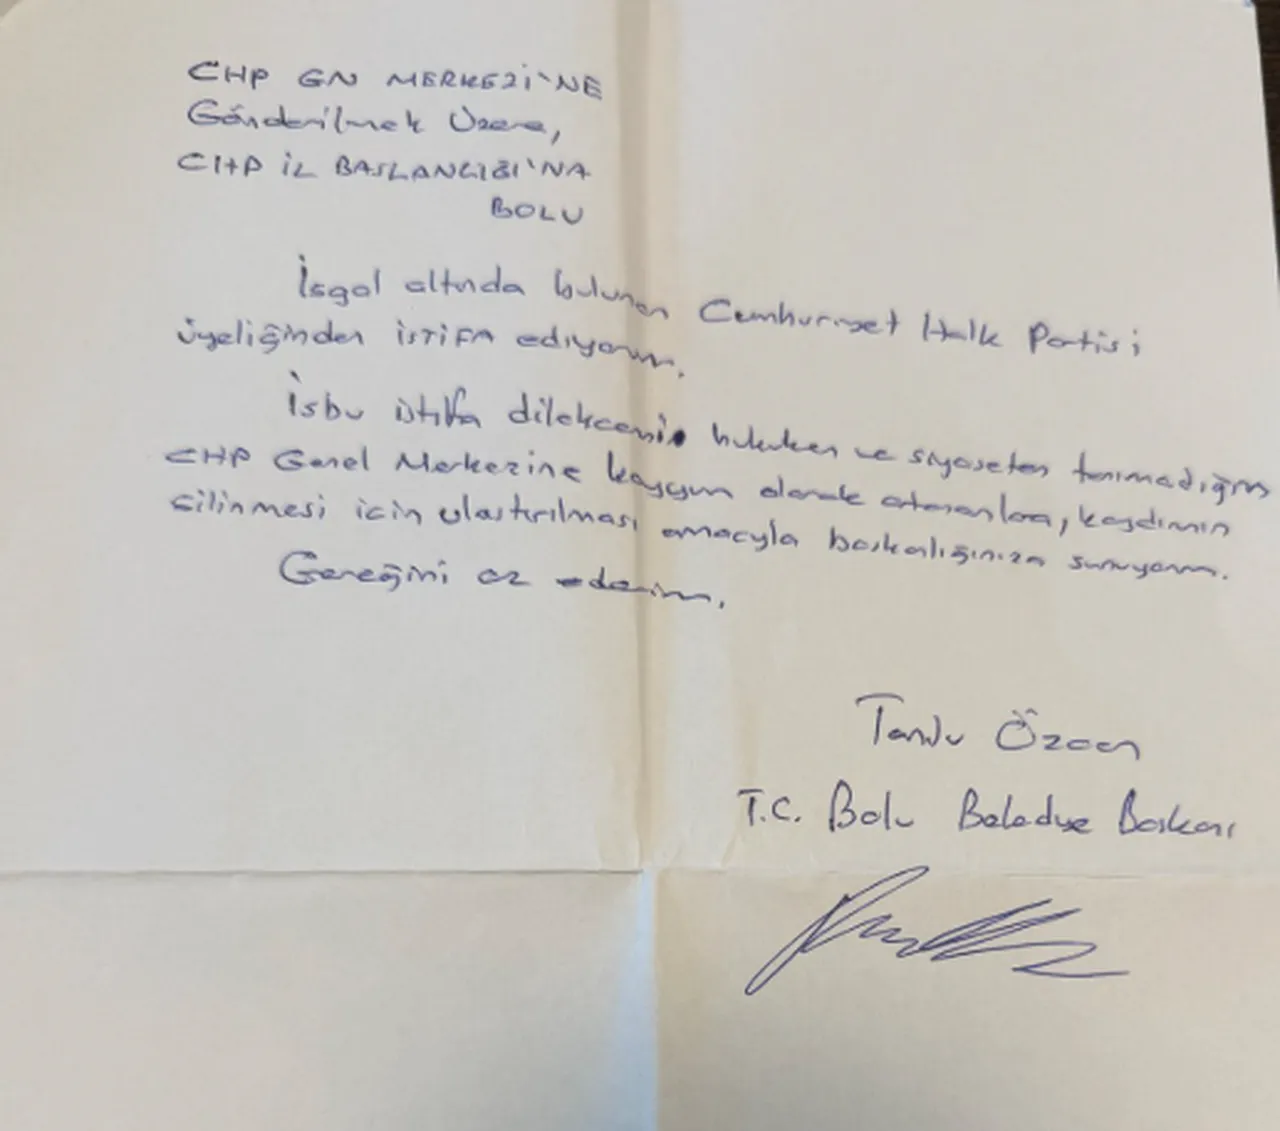 CHP GN MERKEZİ'NE
Gönderilmek Üzere,
CHP İL BAŞKANLIĞI'NA
BOLU
İşgal altında bulunan Cumhuriyet Halk Partisi
üyeliğinden İSTİFA ediyorum.
İşbu istifa dilekçemi hukuken ve siyaseten tanımadığım
CHP Genel Merkezine kayyım olarak atananlara, kaydımın
silinmesi için ulaştırılması amacıyla başkanlığınıza sunuyorum.
Gereğini arz ederim.
Tanju Özcan
T.C. Bolu Belediye Başkanı